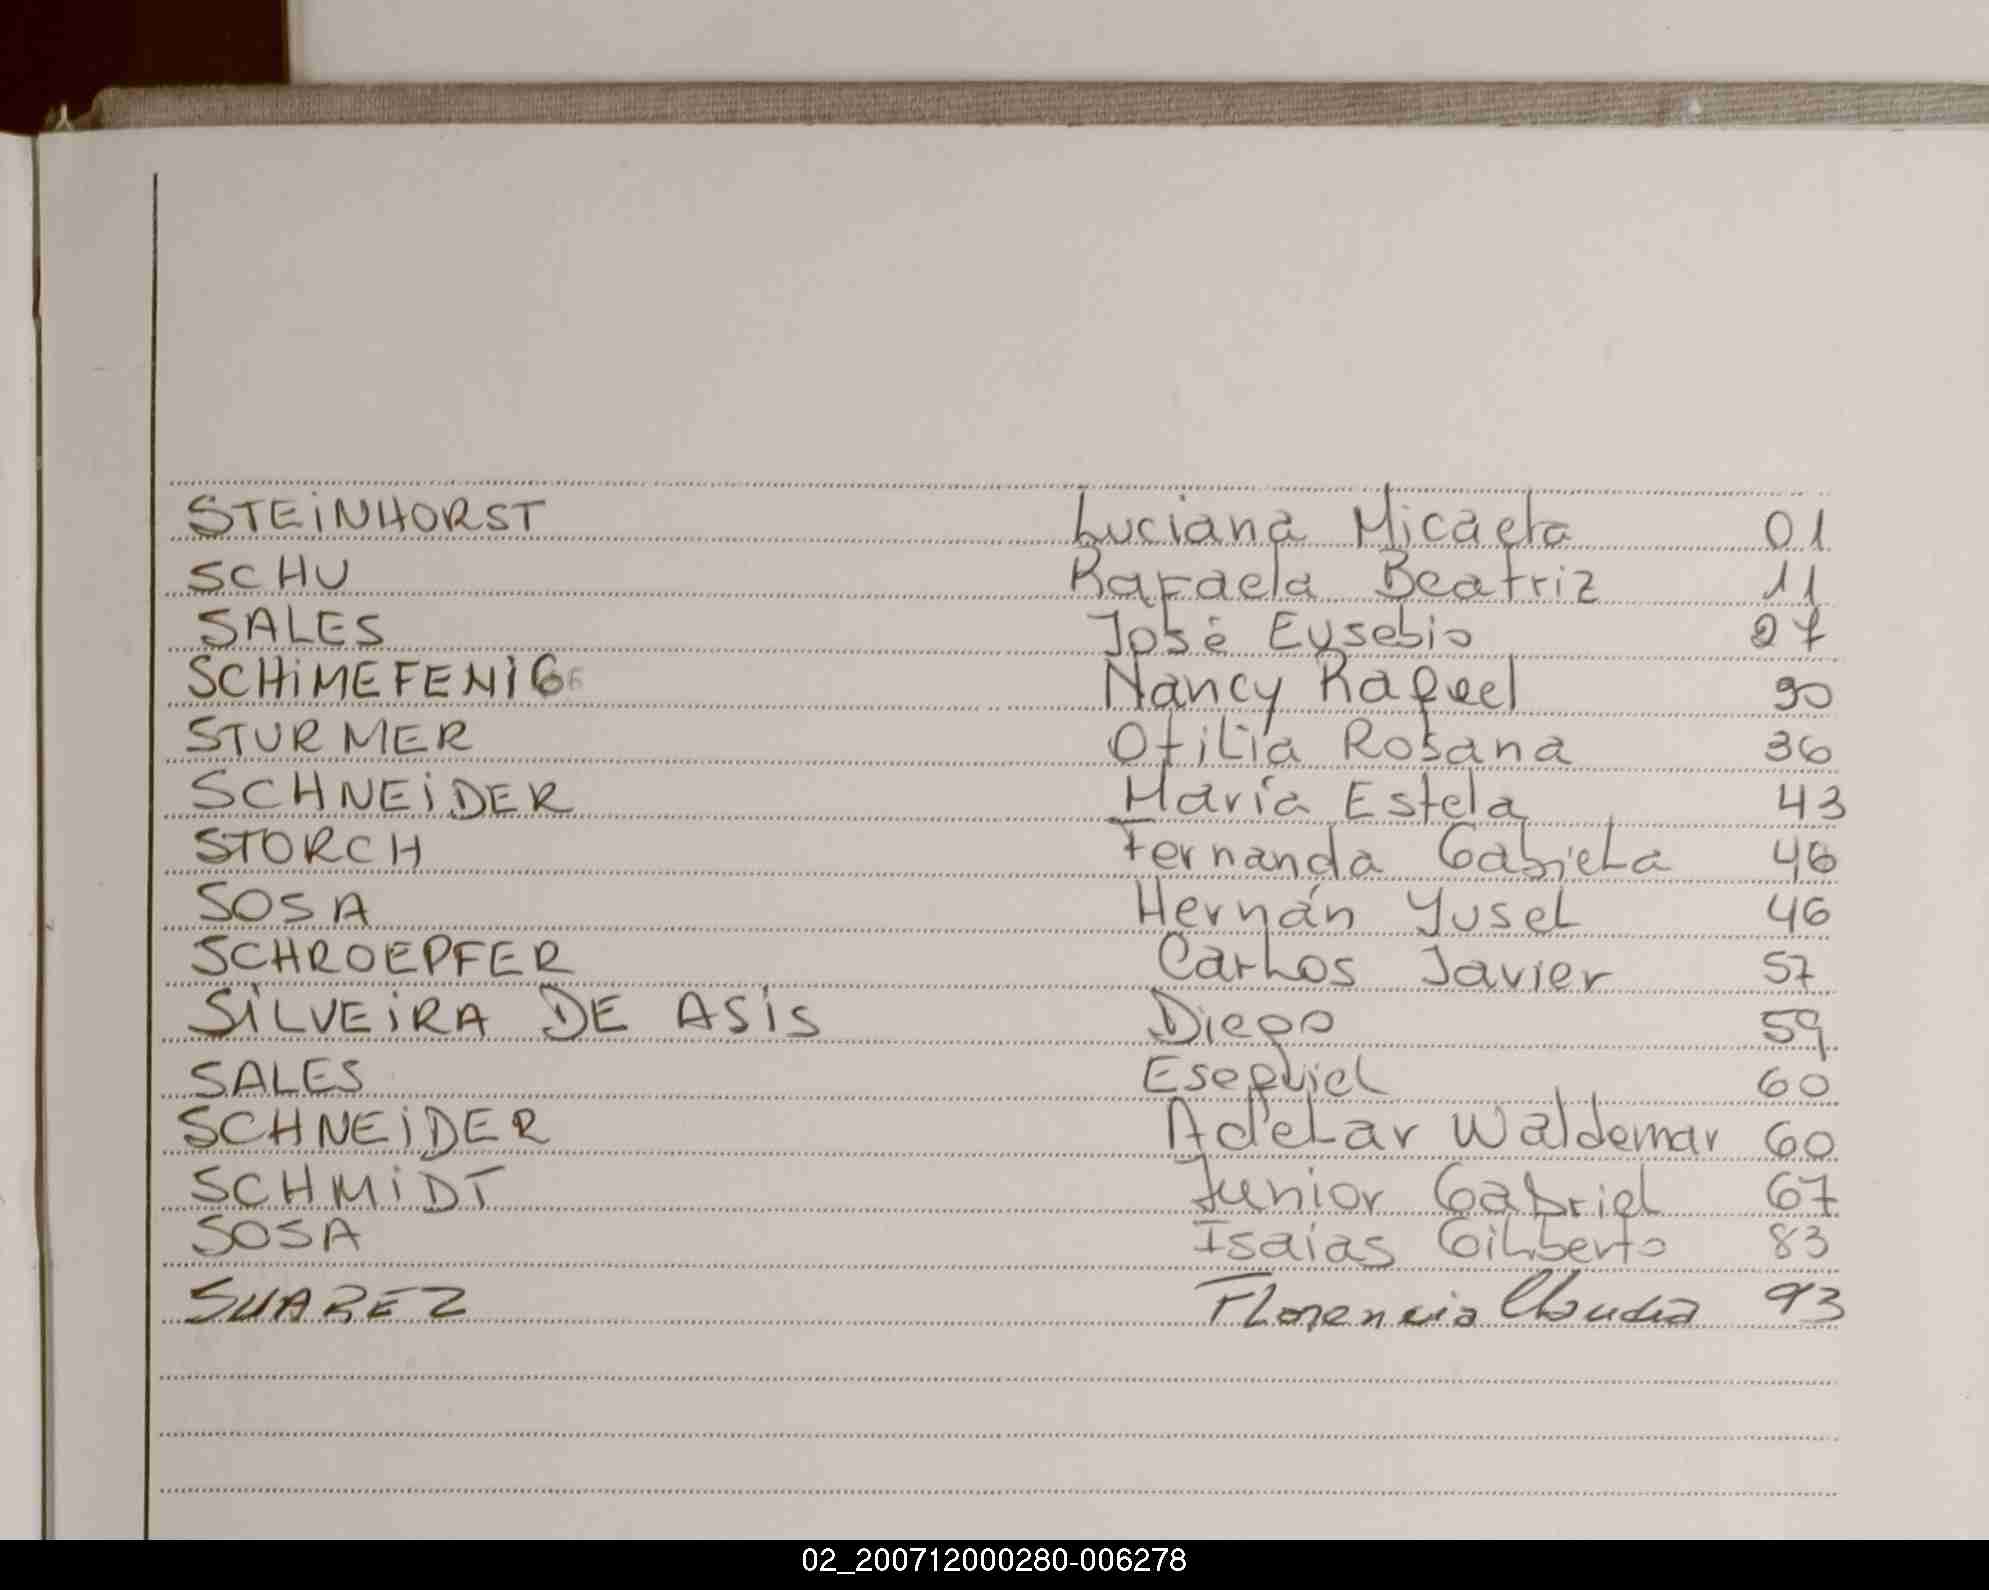 STEINHORST Luciana Micaela 01
SCHU Rafaela Beatriz 11
SALES José Eusebio 27
SCHIMEFENIG Nancy Rafael 30
STURMER Otilia Rosana 36
SCHNEIDER María Estela 43
STORCH Fernanda Gabiela 46
SOSA Hernán Yusel 46
SCHROEPFER Carlos Javier 57
SILVEIRA DE ASIS Diego 59
SALES Esequiel 60
SCHNEIDER Adelar Waldemar 60
SCHMIDT Junior Gabriel 67
SOSA Isaías Gilberto 83
SUAREZ Florencia Claudia 93
02_200712000280-006278